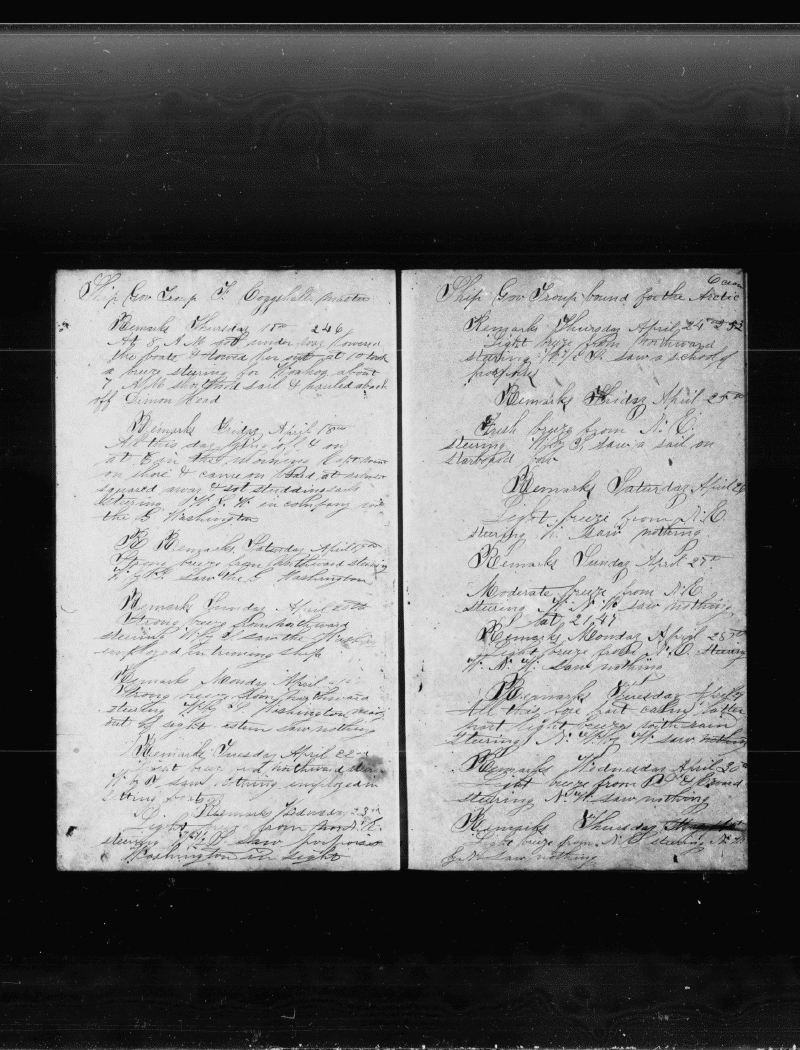 Ship Gov Troup F. Coggshall Master
Remarks Thursday 246
At 8 A M got under way lowered
the boats & towed her out at 10 took
a breeze steering for about
7 A M shortened sail & hauled aback
off Head
Remarks Friday April 18th
All this day lying off & on
at 8 in the morning Capt went
on shore & came on board at sunset
squared away & set studdingsails
steering in company with
the G Washington
Remarks Saturday April 19th
Strong breeze from Northward steering
saw the G Washington
Remarks Sunday April 20th
Strong breeze from Northward
steering W by S saw the G Wash
employed in triming ship
Remarks Monday April
Strong breeze from Northward
steering W by S Washington
out of sight astern saw nothing
Remarks Tuesday April 22nd
Light breeze from northward steer
W by S saw nothing employed in
boats
Remarks Wednesday 23rd
Light breeze from N. E.
steering W saw porpoises
Washington in sight
Ship Gov Troup bound for the Arctic
Remarks Thursday April 24th
Light breeze from Northward
steering saw a school of
porpoises
Remarks Friday April 25th
Fresh breeze from N. E.
steering W by S, saw a sail on
starboard bow
Remarks Saturday April 26
Light breeze from N. E.
steering W. saw nothing
Remarks Sunday April 27th
Moderate breeze from N. E.
steering W. N. W. saw nothing
Lat 21,47
Remarks Monday April 28th
Light breeze from N. E. steering
W. N. W. saw nothing
Remarks Tuesday April 29
All this fore part calm latter
part light breeze with rain
steering N. W. by W. saw nothing
Remarks Wednesday April 30th
Light breeze from
steering N. W. saw nothing
Remarks Thursday
Light breeze from N. E. steering N. W
by N. saw nothing